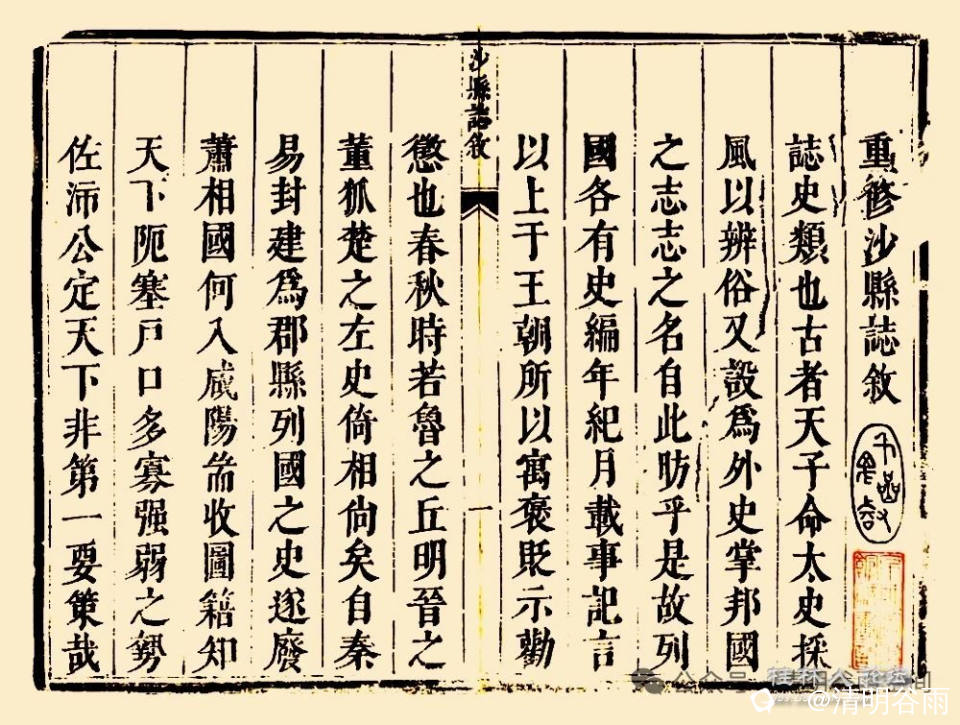 重修沙縣誌敘
誌史類也古者天子命太史採
風以辨俗又設爲外史掌邦國
之志志之名自此昉乎是故列
國各有史編年紀月載事記言
以上于王朝所以寓褒貶示勸
沙縣誌敘
一
懲也春秋時若魯之丘明晉之
董狐楚之左史倚相尚矣自秦
易封建爲郡縣列國之史遂廢
蕭相國何入咸陽耑收圖籍知
天下阨塞戶口多寡强弱之勢
佐沛公定天下非第一要策哉
公众号
桂林人论坛
@清明谷雨